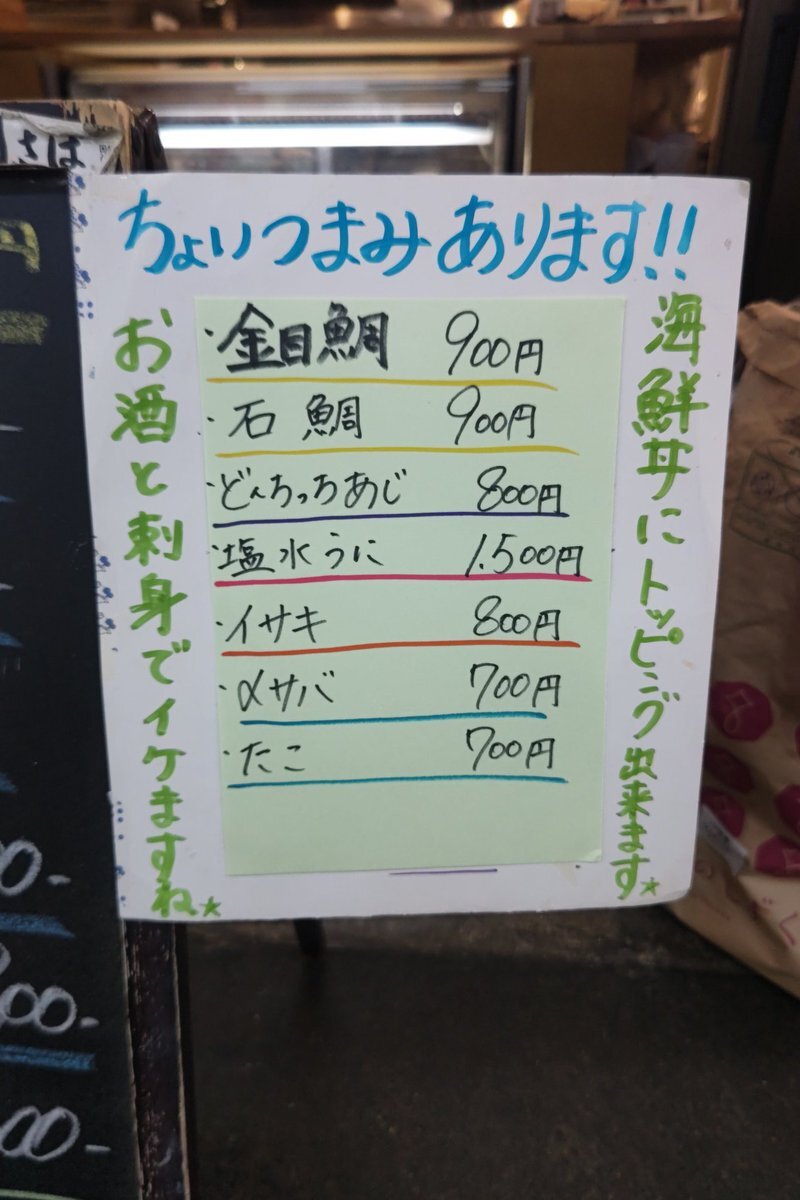 ちょいつまみあります!!
海鮮丼にトッピング出来ます☆
・金目鯛 900円
・石鯛 900円
・どんちっちあじ 800円
・塩水うに 1.500円
・イサキ 800円
・〆サバ 700円
・たこ 700円
お酒と刺身でイケますね☆
さば
円
00-
00-
00-